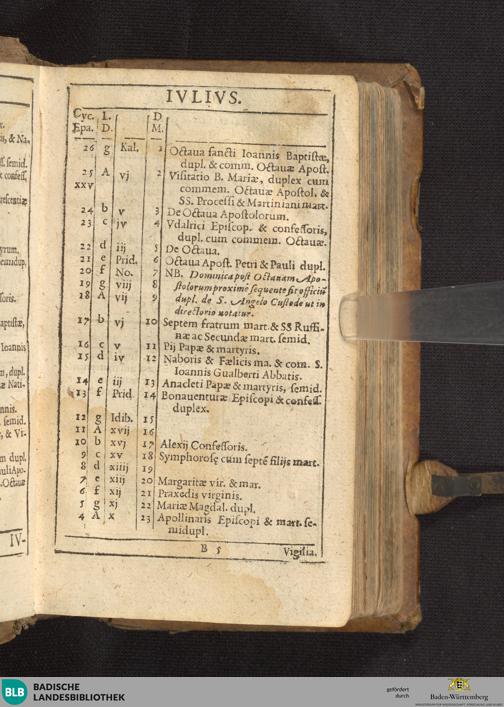 IVLIVS.
Cyc. L. D
Epa. D. M.
26 g Kal. 1 Octaua sancti Ioannis Baptistæ,
dupl. & comm. Octauæ Apost.
25 A vj 2 Visitatio B. Mariæ, duplex cum
xxv commem. Octauæ Apostol. &
SS. Processi & Martiniani mart.
24 b v 3 De Octaua Apostolorum.
23 c jv 4 Vdalrici Episcop. & confessoris,
dupl. cum commem. Octauæ.
22 d iij 5 De Octaua.
21 e Prid. 6 Octaua Apost. Petri & Pauli dupl.
20 f No. 7 NB. Dominica post Octauam Apo-
19 g viij 8 stolorum proximè sequente fit officiũ
18 A vij 9 dupl. de S. Angelo Custode ut in
directorio notatur.
17 b vj 10 Septem fratrum mart. & SS Ruffi-
næ ac Secundæ mart. semid.
16 c v 11 Pij Papæ & martyris.
15 d iv 12 Naboris & Fælicis ma. & com. S.
Ioannis Gualberti Abbatis.
14 e iij 13 Anacleti Papæ & martyris, semid.
13 f Prid 14 Bonauenturæ Episcopi & confess.
duplex.
12 g Idib. 15
11 A xvij 16
10 b xvj 17 Alexij Confessoris.
9 c xv 18 Symphorosę cum septẽ filijs mart.
8 d xiiij 19
7 e xiij 20 Margaritæ vir. & mar.
6 f xij 21 Praxedis virginis.
5 g xj 22 Mariæ Magdal. dupl.
4 A x 23 Apollinaris Episcopi & mart. se-
midupl.
B 5 Vigilia.
, & Na-
semid.
confess.
emidup.
soris.
Ioannis
m, dupl.
æ Nati-
nnis.
semid.
, & Vi-
m dupl.
auli Apo-
. Octauæ
IV-
BLB BADISCHE
LANDESBIBLIOTHEK
gefördert
durch
Baden-Württemberg